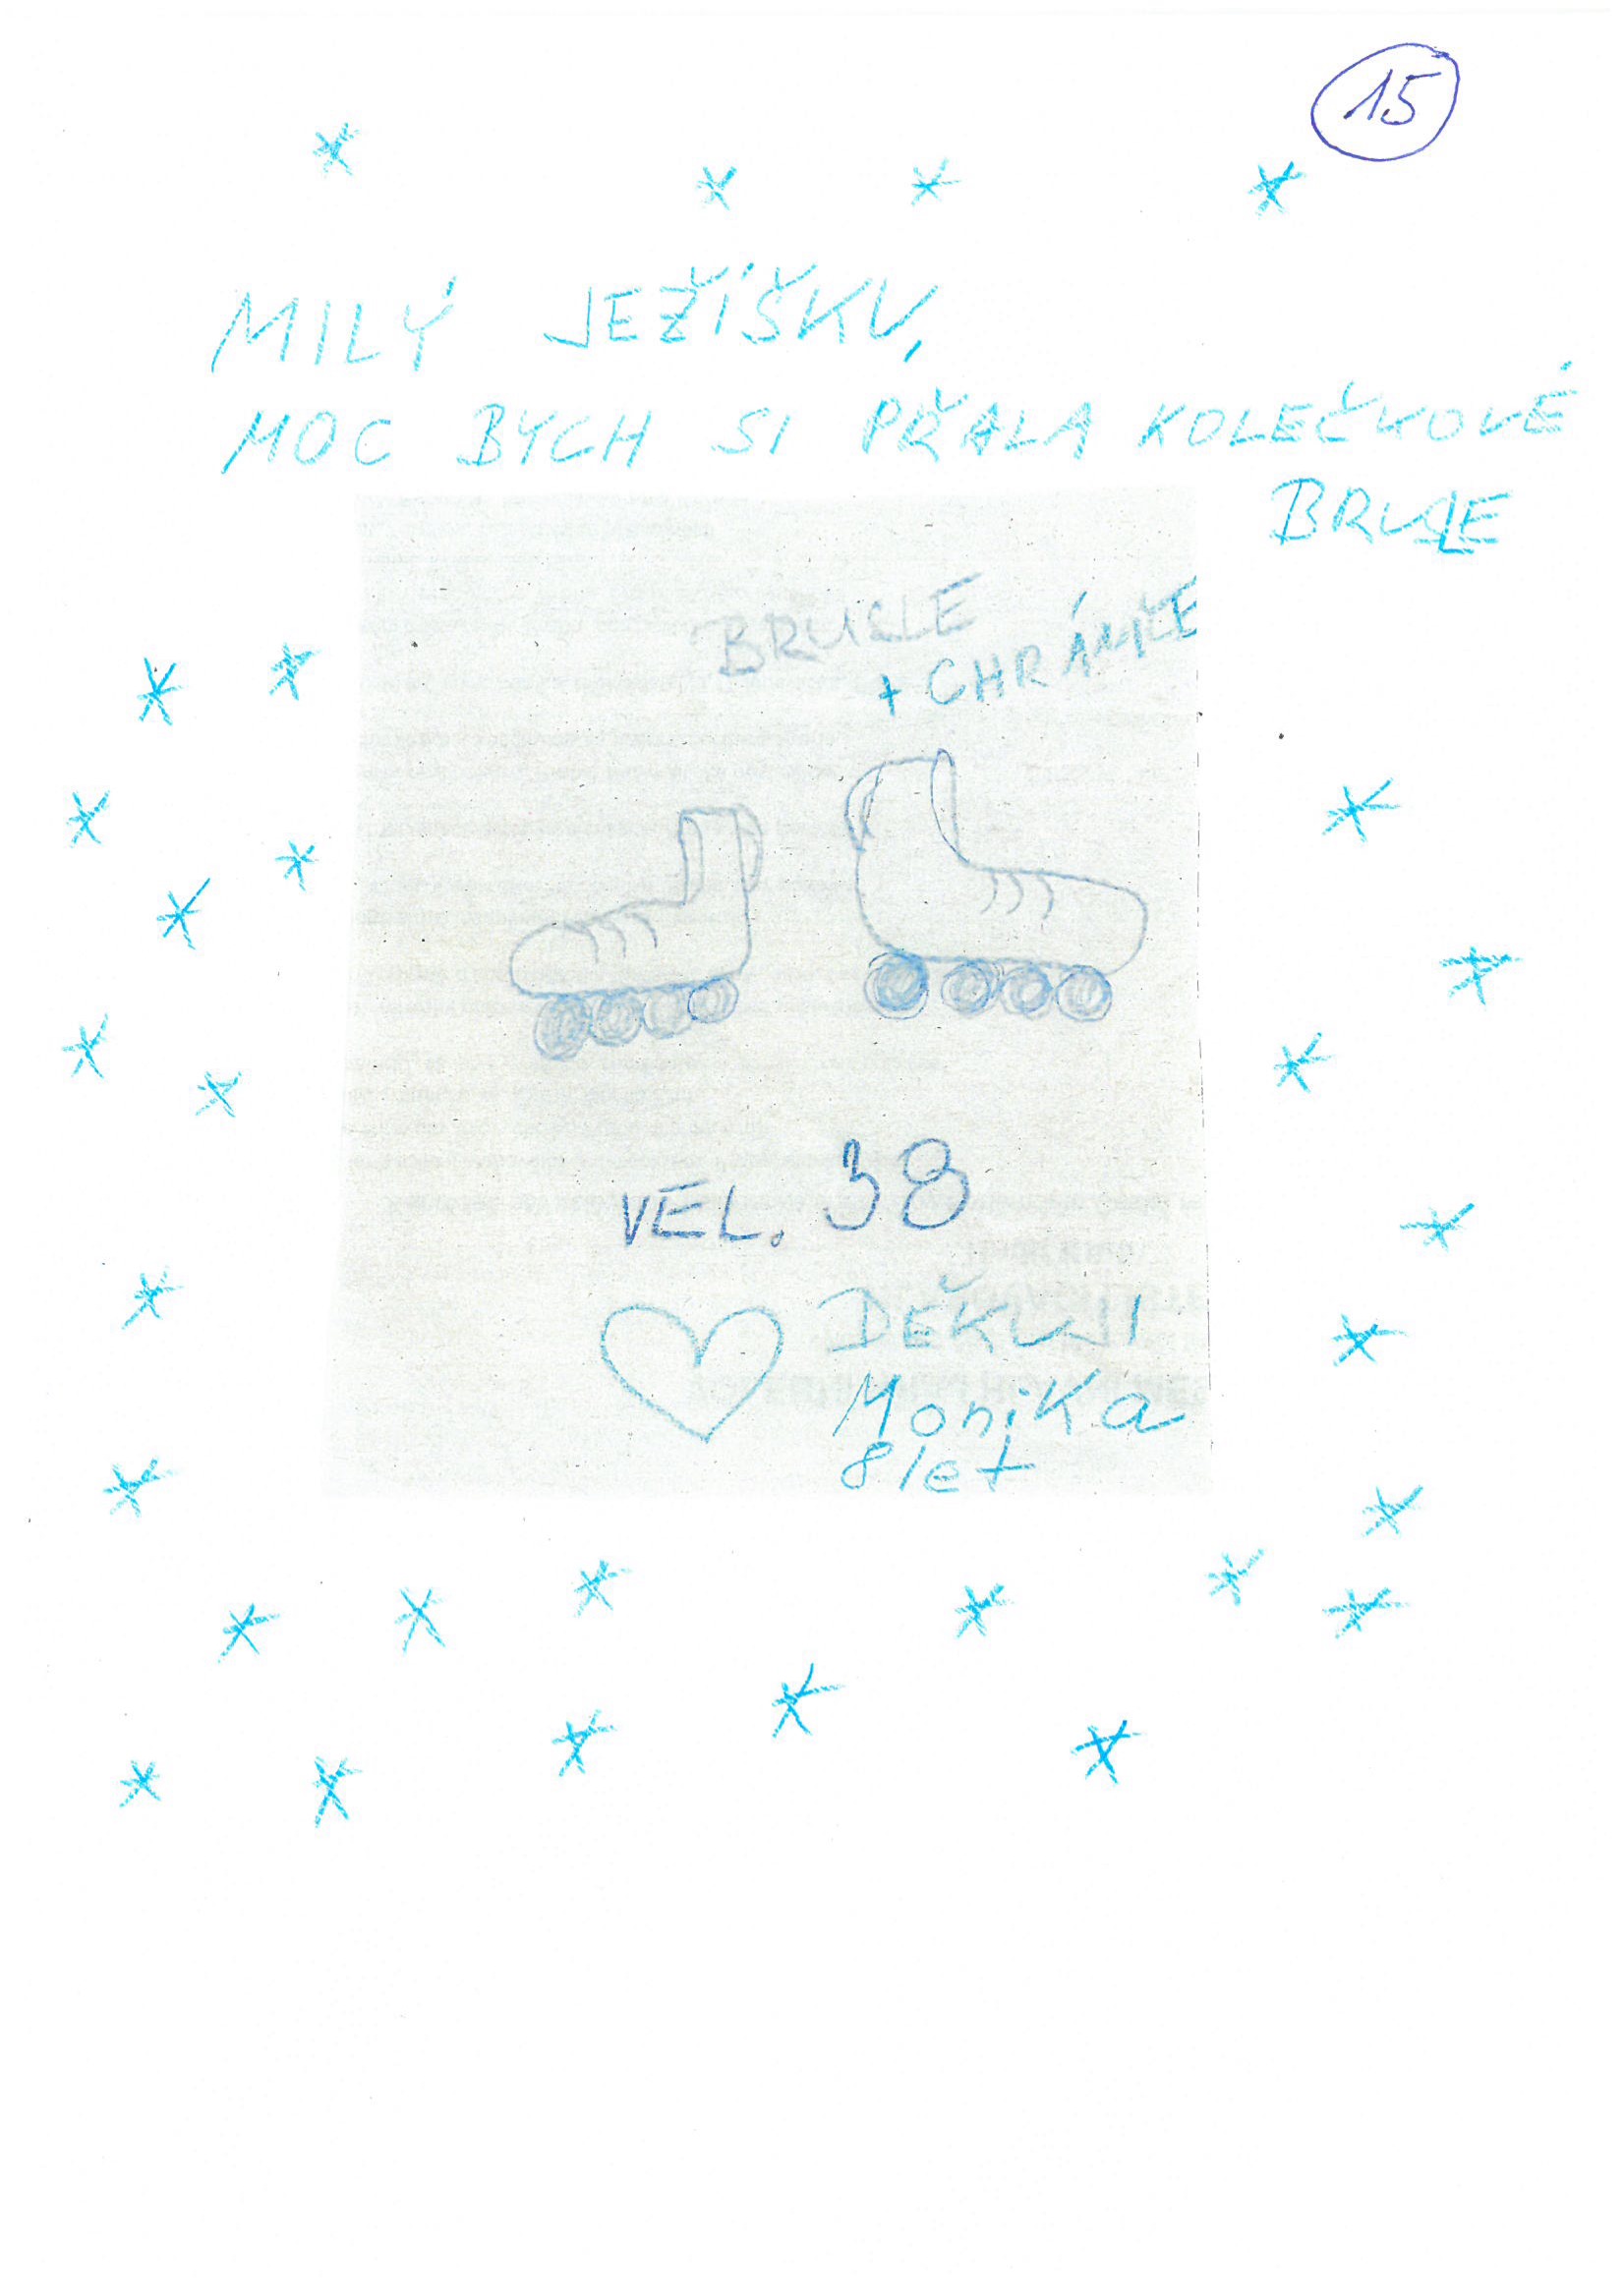 15
MILÝ JEŽÍŠKU,
MOC BYCH SI PŘÁLA KOLEČKOVÉ
BRUSLE
BRUSLE
+ CHRÁNIČE
VEL. 38
DĚKUJI
Monika
8 let